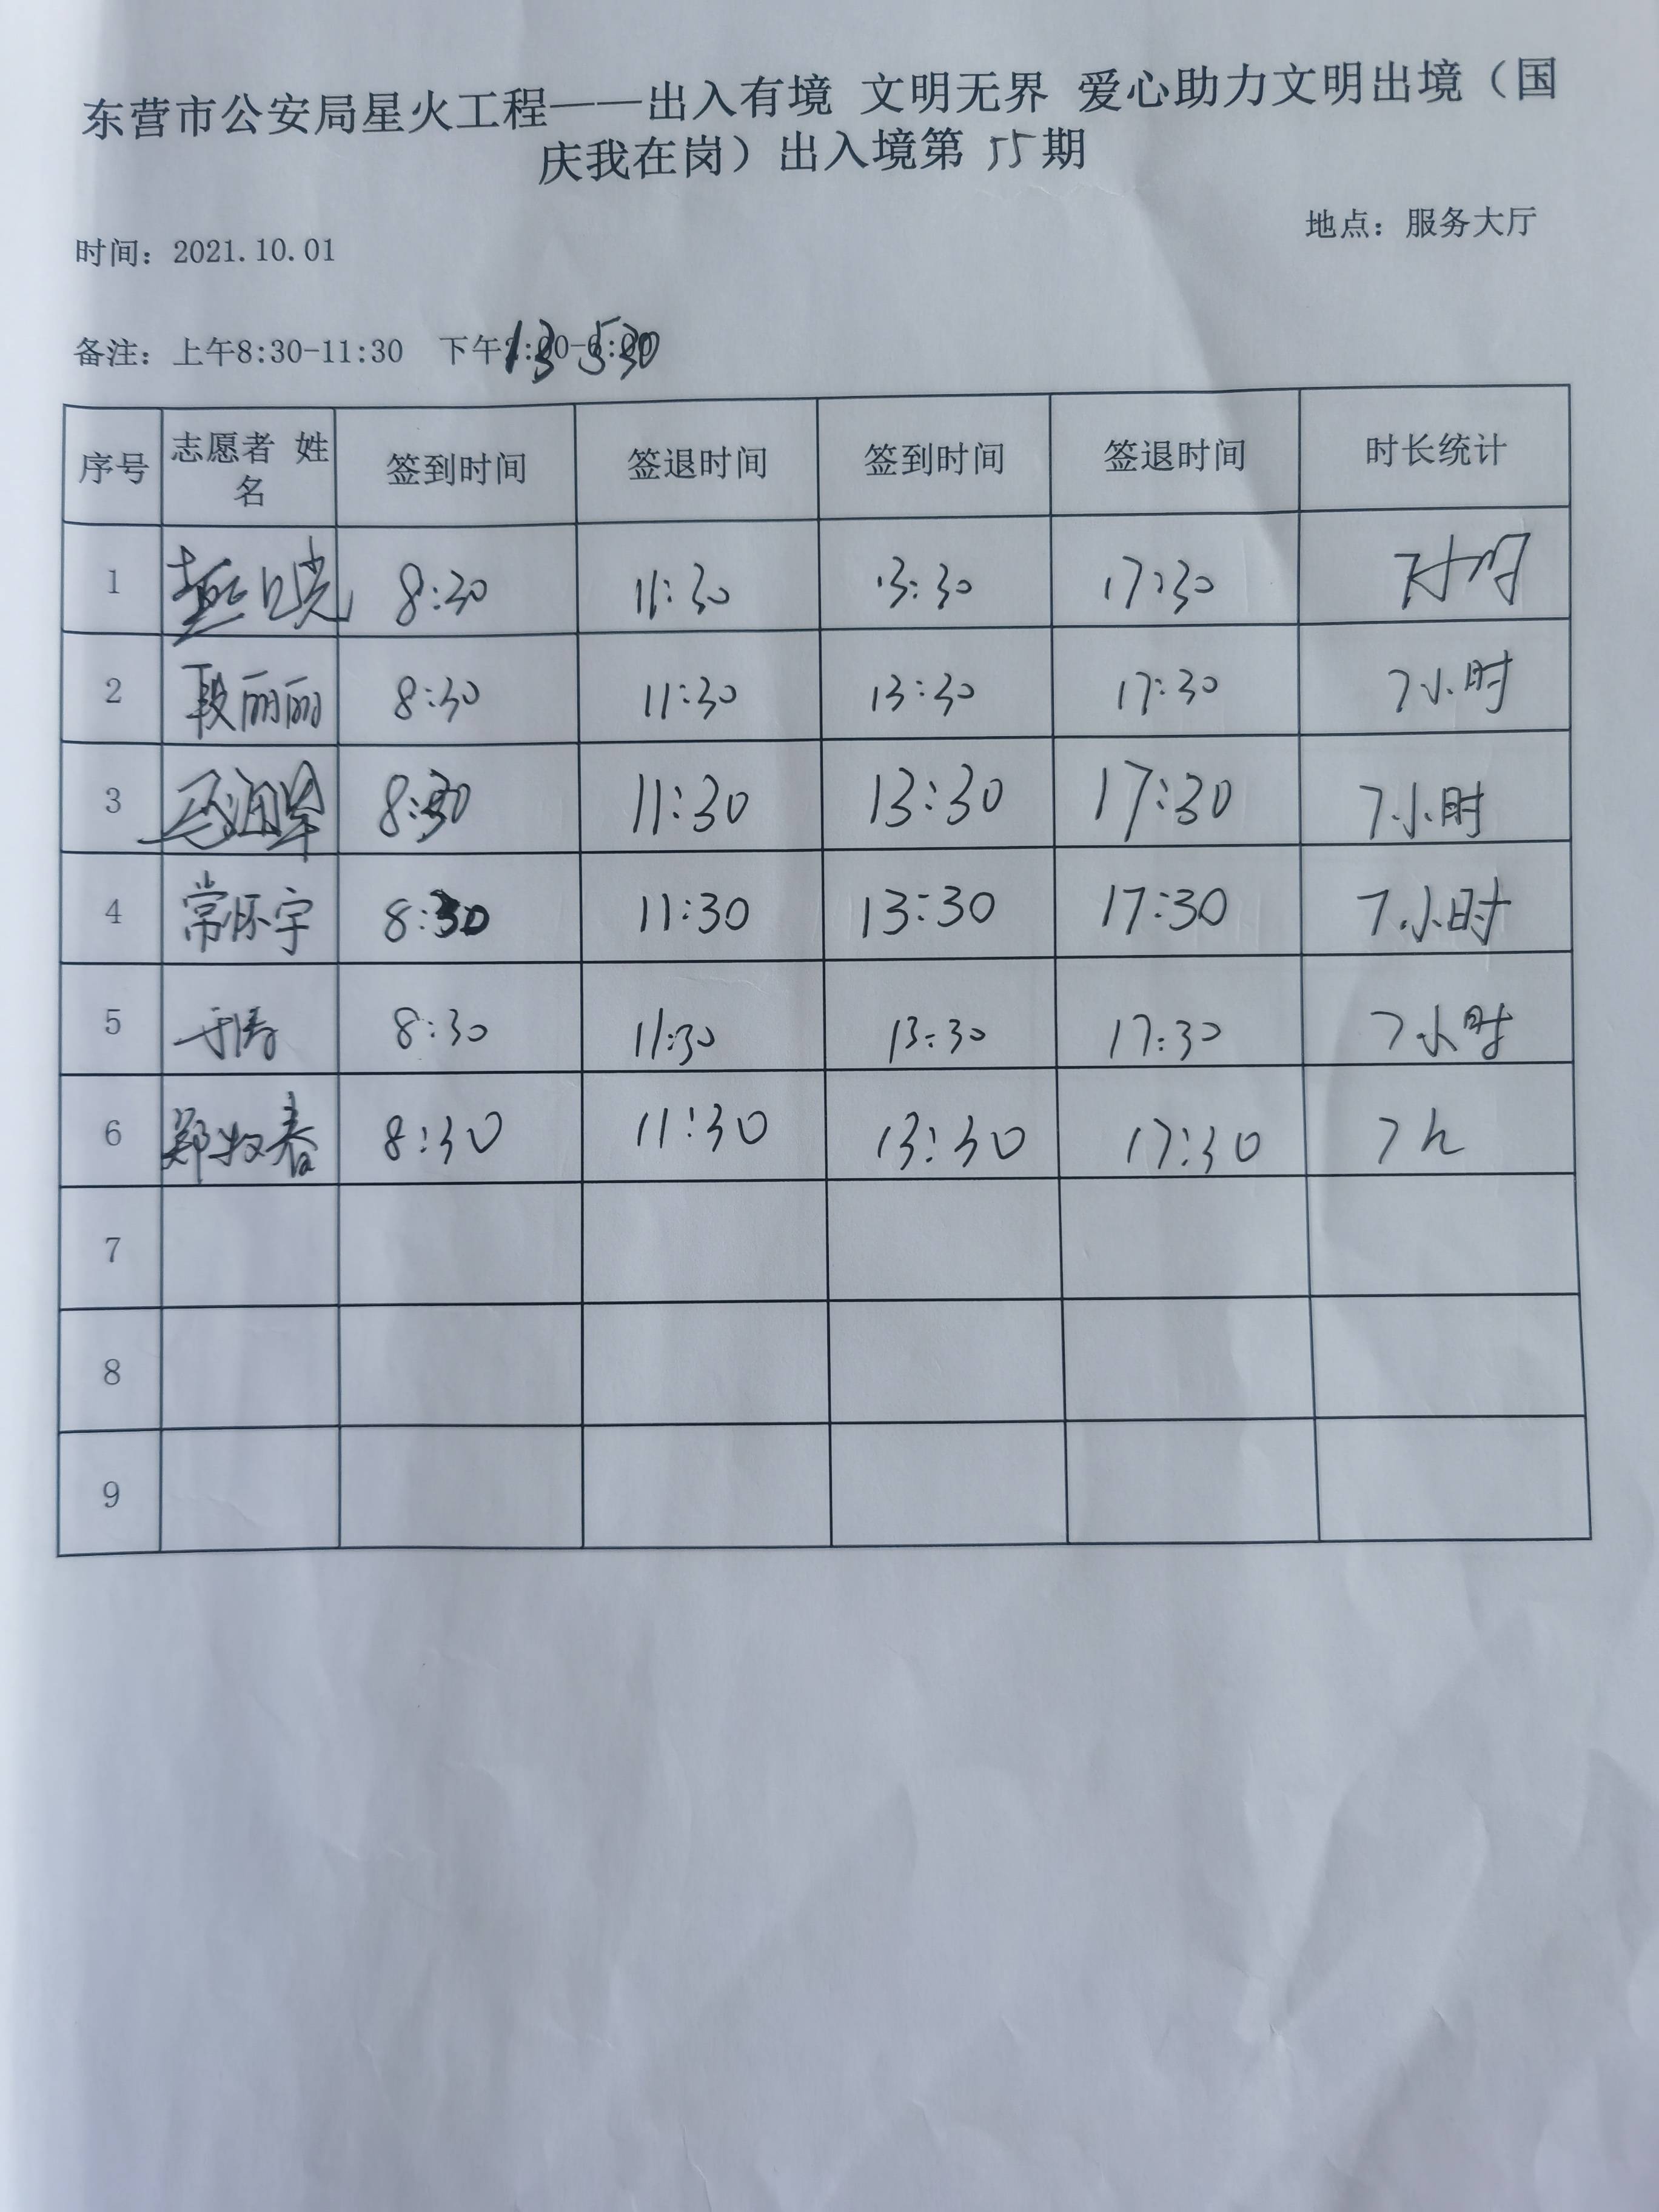 东营市公安局星火工程——出入有境 文明无界 爱心助力文明出境（国
庆我在岗）出入境第 55 期
地点：服务大厅
时间：2021.10.01
备注：上午8:30-11:30 下午
序号 志愿者 姓名 签到时间 签退时间 签到时间 签退时间 时长统计
1 8:30 11:30 13:30 17:30 7小时
2 段丽丽 8:30 11:30 13:30 17:30 7小时
3 8:30 11:30 13:30 17:30 7小时
4 常怀宇 8:30 11:30 13:30 17:30 7小时
5 于涛 8:30 11:30 13:30 17:30 7小时
6 郑牧春 8:30 11:30 13:30 17:30 7h
7
8
9